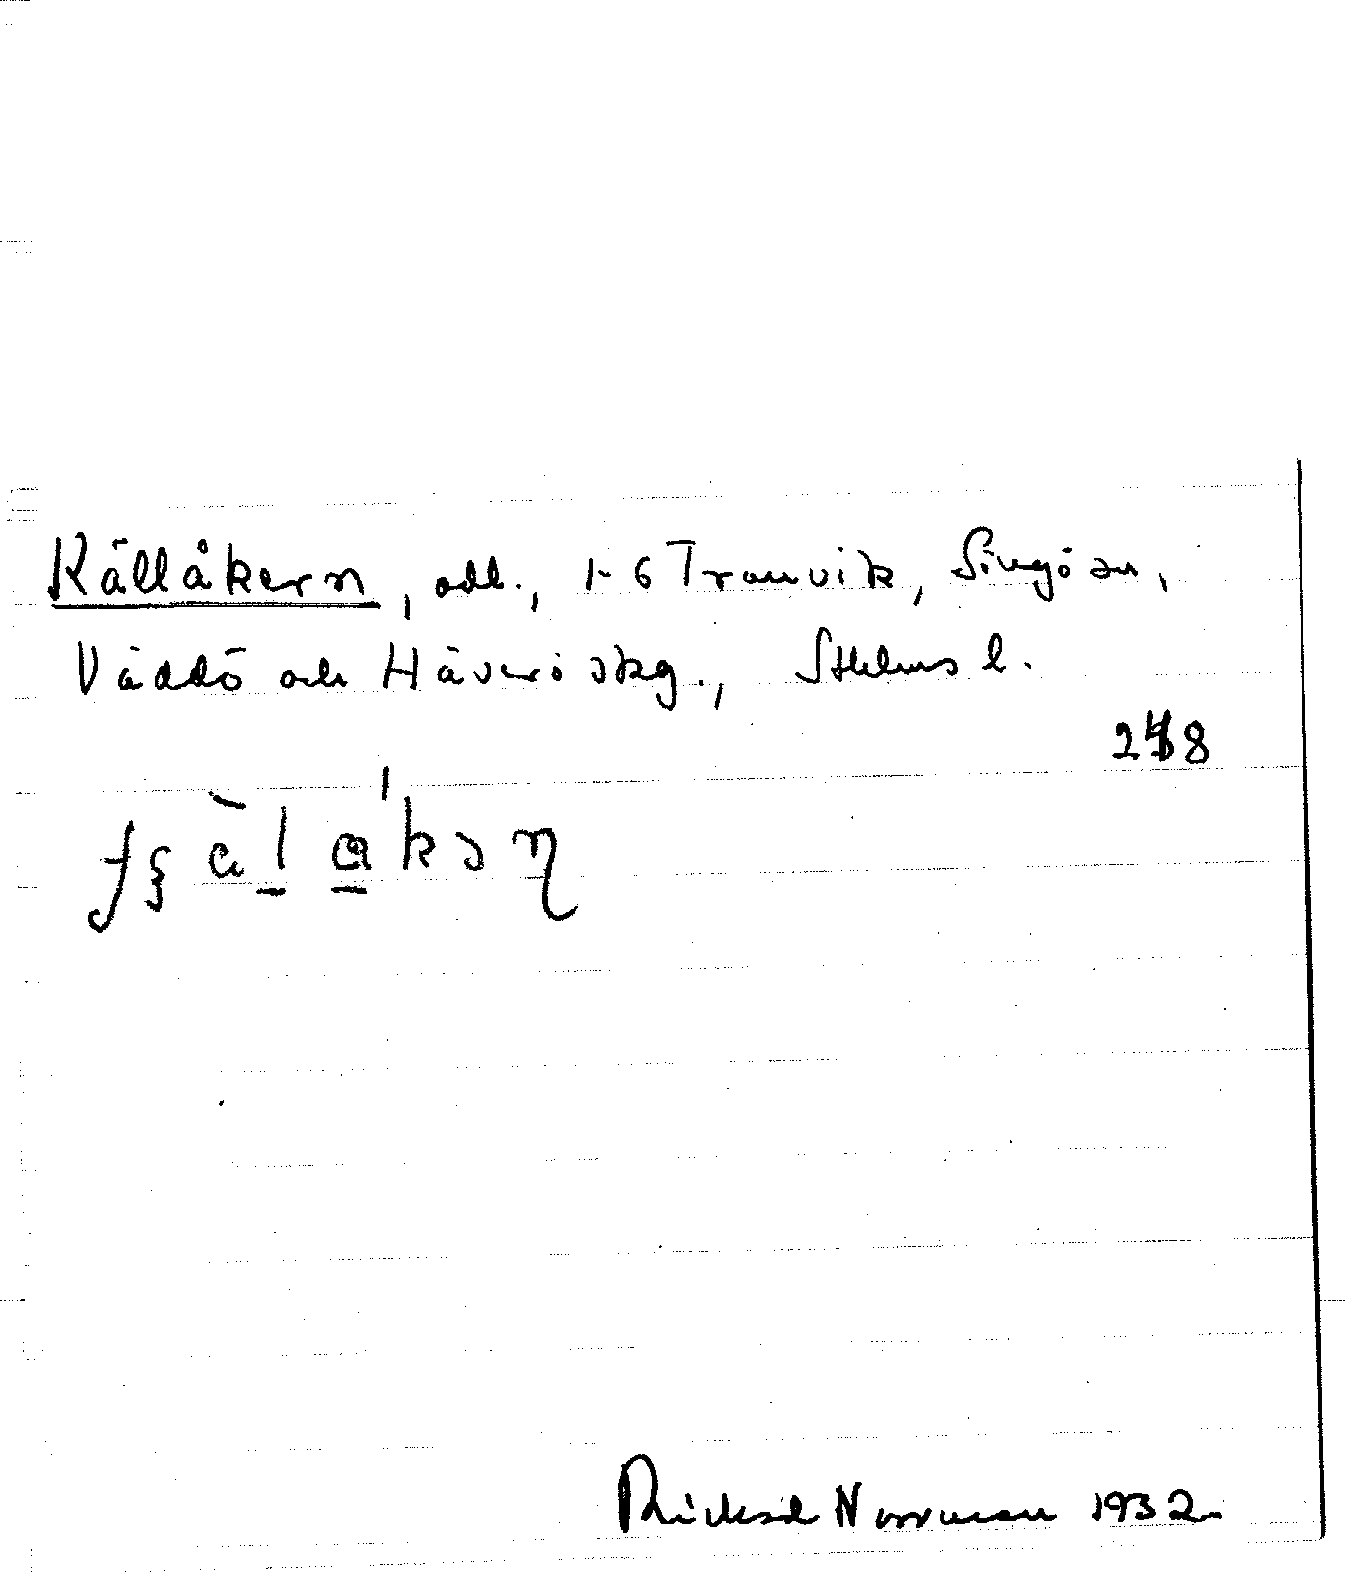 Källåkern, odl., 1-6 Tranvik, Singö sn,
Väddö och Häverö skg., Sthlms l.
248
Rickard Norrman 1932